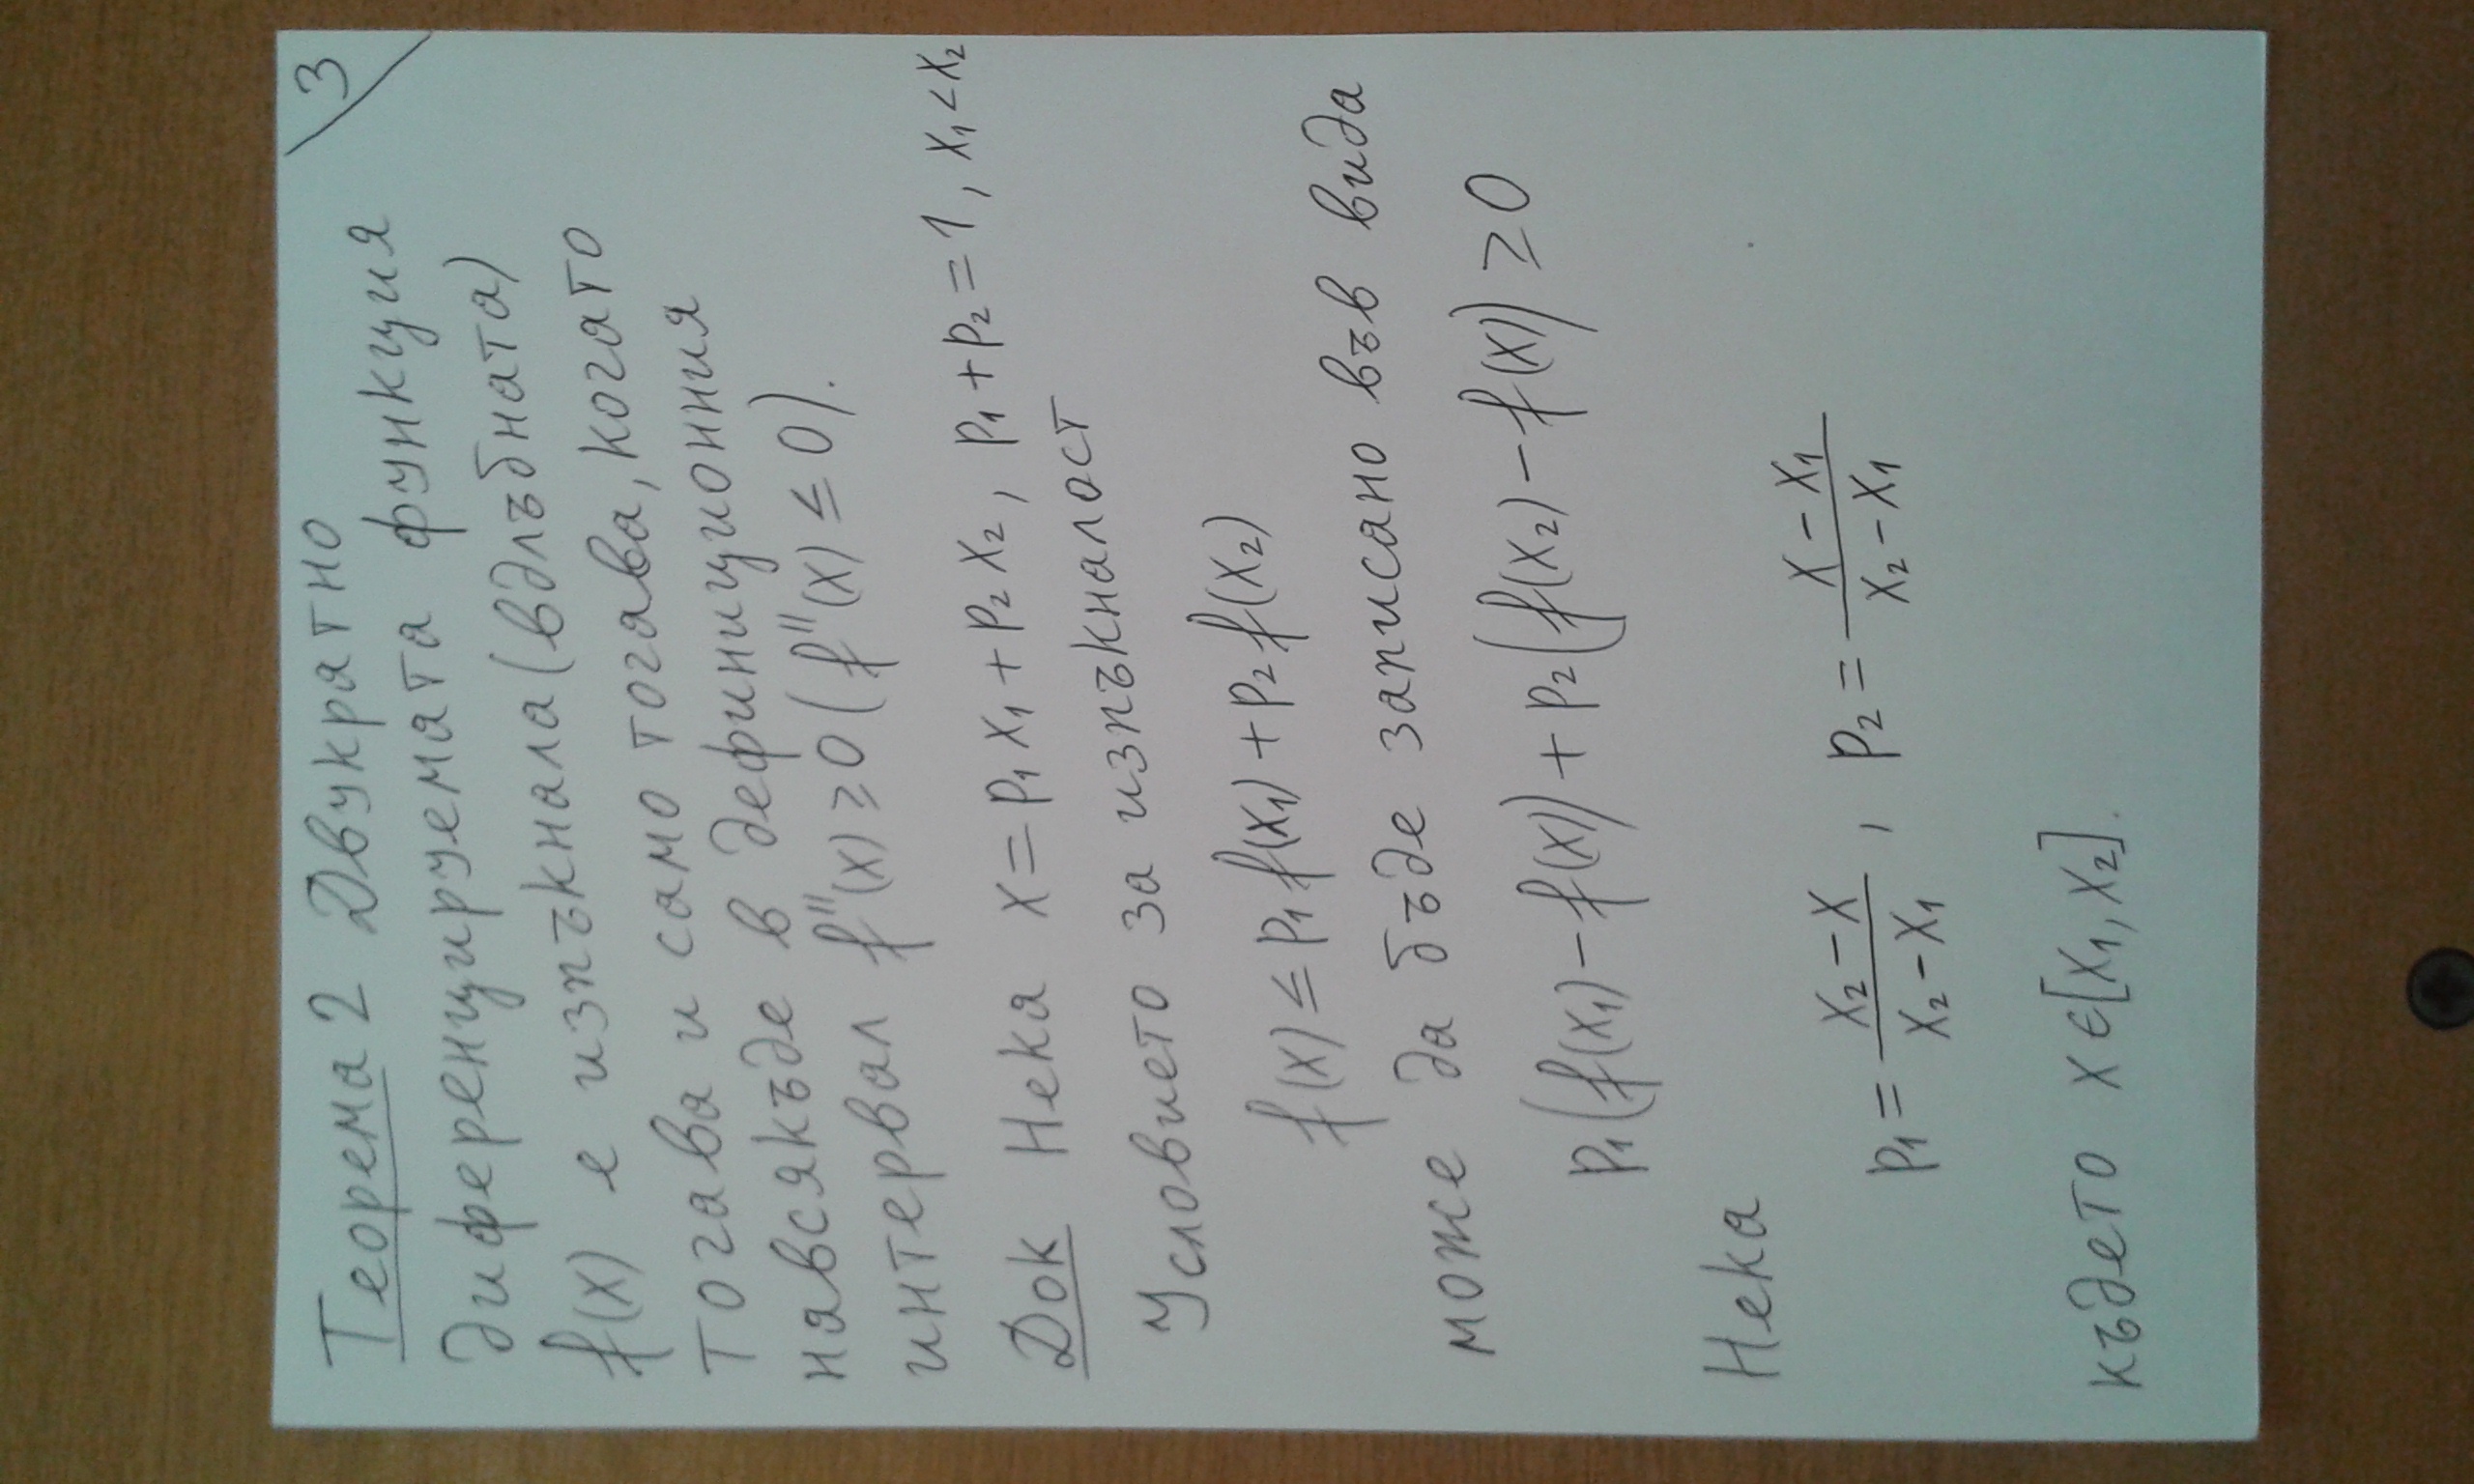 Теорема 2 Двукратно
3
диференцируемата функция
f(x) е изпъкнала (вдлъбната)
тогава и само тогава, когато
навсякъде в дефиниционния
интервал f''(x) ≥ 0 (f''(x) ≤ 0).
Док Нека x = p₁x₁ + p₂x₂, p₁ + p₂ = 1, x₁ < x₂
Условието за изпъкналост
f(x) ≤ p₁f(x₁) + p₂f(x₂)
може да бъде записано във вида
p₁(f(x₁) − f(x)) + p₂(f(x₂) − f(x)) ≥ 0
Нека
p₁ = (x₂ − x)/(x₂ − x₁), p₂ = (x − x₁)/(x₂ − x₁)
където x ∈ [x₁, x₂].